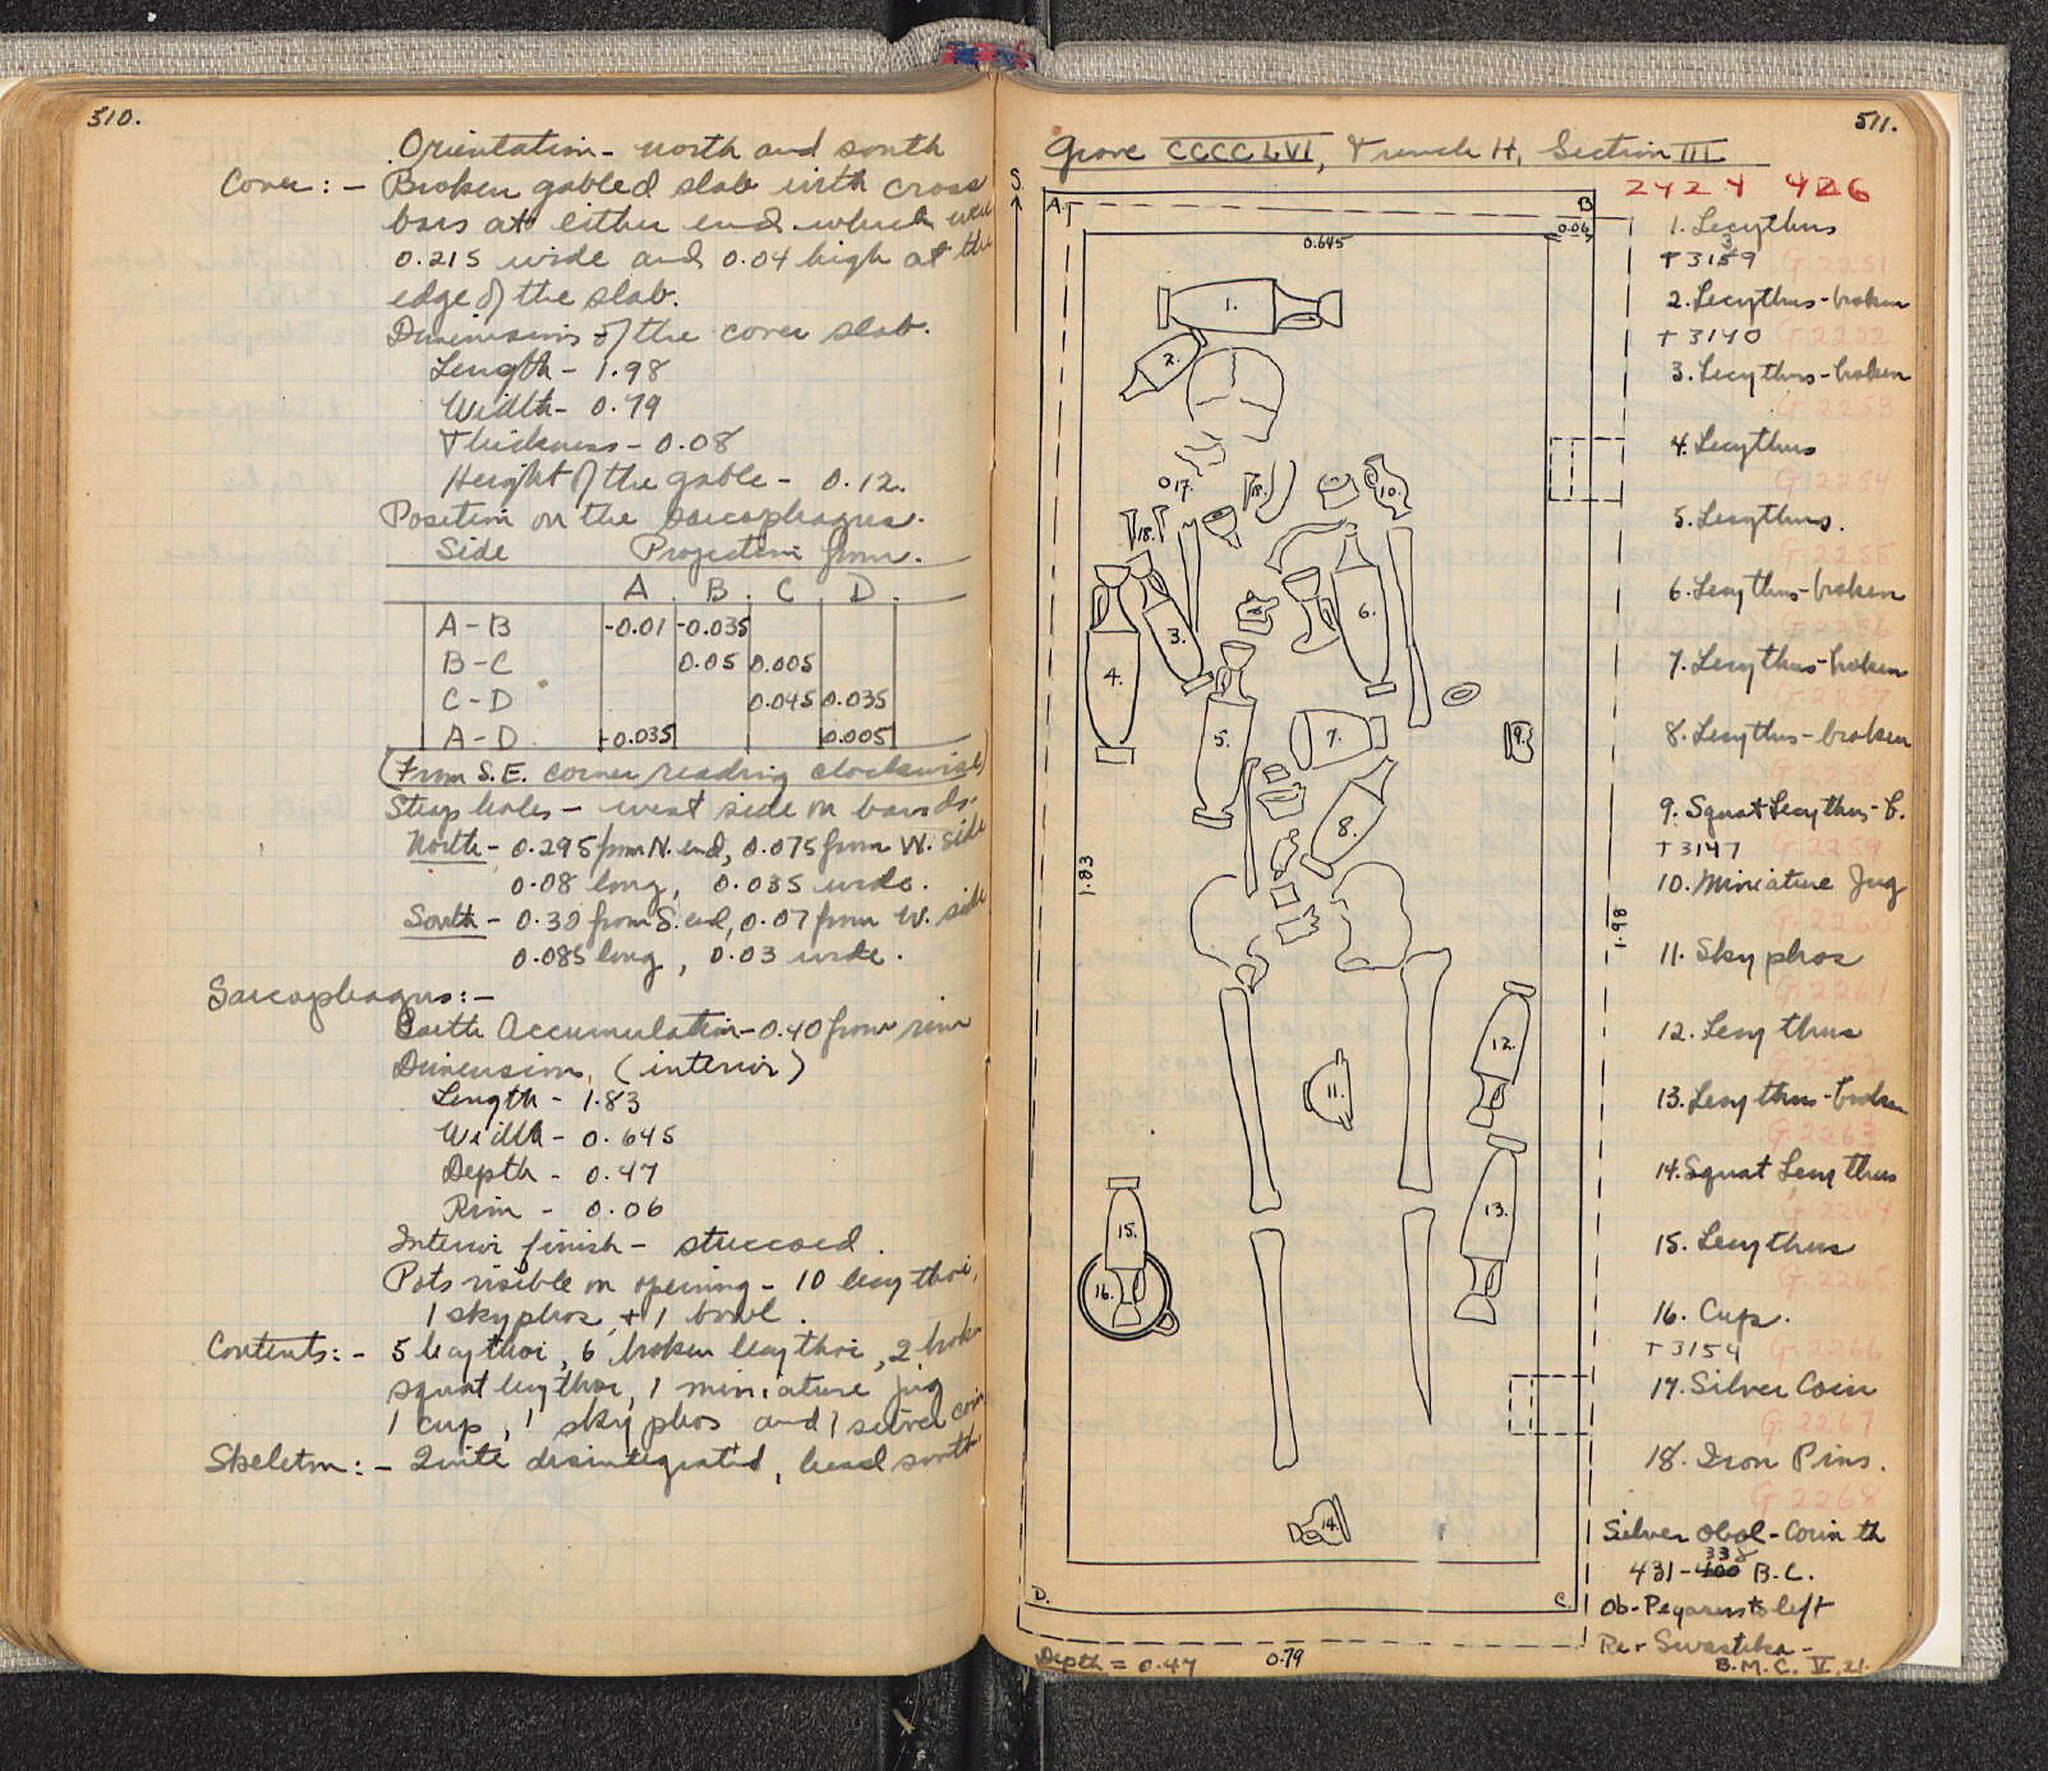 510.
Orientation - north and south
Cover: - Broken gabled slab with cross
bars at either end which were
0.215 wide and 0.04 high at the
edge of the slab.
Dimensions of the cover slab.
Length - 1.98
Width - 0.79
Thickness - 0.08
Height of the gable - 0.12.
Position on the sarcophagus.
Side Projection from.
A. B. C. D.
A-B -0.01 -0.035
B-C 0.05 0.005
C-D 0.045 0.035
A-D. -0.035 0.005
(From S.E. corner reading clockwise)
Strap holes - west side on bands.
North - 0.295 from N. end, 0.075 from W. side
0.08 long, 0.035 wide.
South - 0.30 from S. end, 0.07 from W. side
0.085 long, 0.03 wide.
Sarcophagus: -
Earth Accumulation - 0.40 from rim
Dimensions, (interior)
Length - 1.83
Width - 0.645
Depth - 0.47
Rim - 0.06
Interior finish - stuccoed.
Pots visible on opening - 10 lecythoi,
1 skyphos, + 1 bowl.
Contents: - 5 lecythoi, 6 broken lecythoi, 2 broken
squat lecythoi, 1 miniature jug
1 cup, 1 skyphos and 1 silver coin
Skeleton: - Quite disintegrated, head south
511.
Grave CCCCLVI, Trench H, Section III
2424 426
S.
A. B
0.645 0.06
1.
2.
17. 18. 10.
18.
3. 6.
4.
5. 7. 9.
8.
1.83
1.98
12.
11.
13.
15.
16.
14.
D. C.
Depth = 0.47 0.79
1. Lecythus
T 3139 G. 2251
2. Lecythus - broken
T 3140 G. 2252
3. Lecythus - broken
G. 2253
4. Lecythus
G. 2254
5. Lecythus.
G. 2255
6. Lecythus - broken
G. 2256
7. Lecythus - broken
G. 2257
8. Lecythus - broken
G. 2258
9. Squat Lecythus - b.
T 3147 G. 2259
10. Miniature Jug
G. 2260
11. Skyphos
G. 2261
12. Lecythus
G. 2262
13. Lecythus - broken
G. 2263
14. Squat Lecythus
G. 2264
15. Lecythus
G. 2265
16. Cup.
T 3154 G. 2266
17. Silver Coin
G. 2267
18. Iron Pins.
G. 2268
Silver Obol - Corinth
338
431-400 B.C.
Ob - Pegasus to left
Rev Swastika -
B.M.C. V, 21.